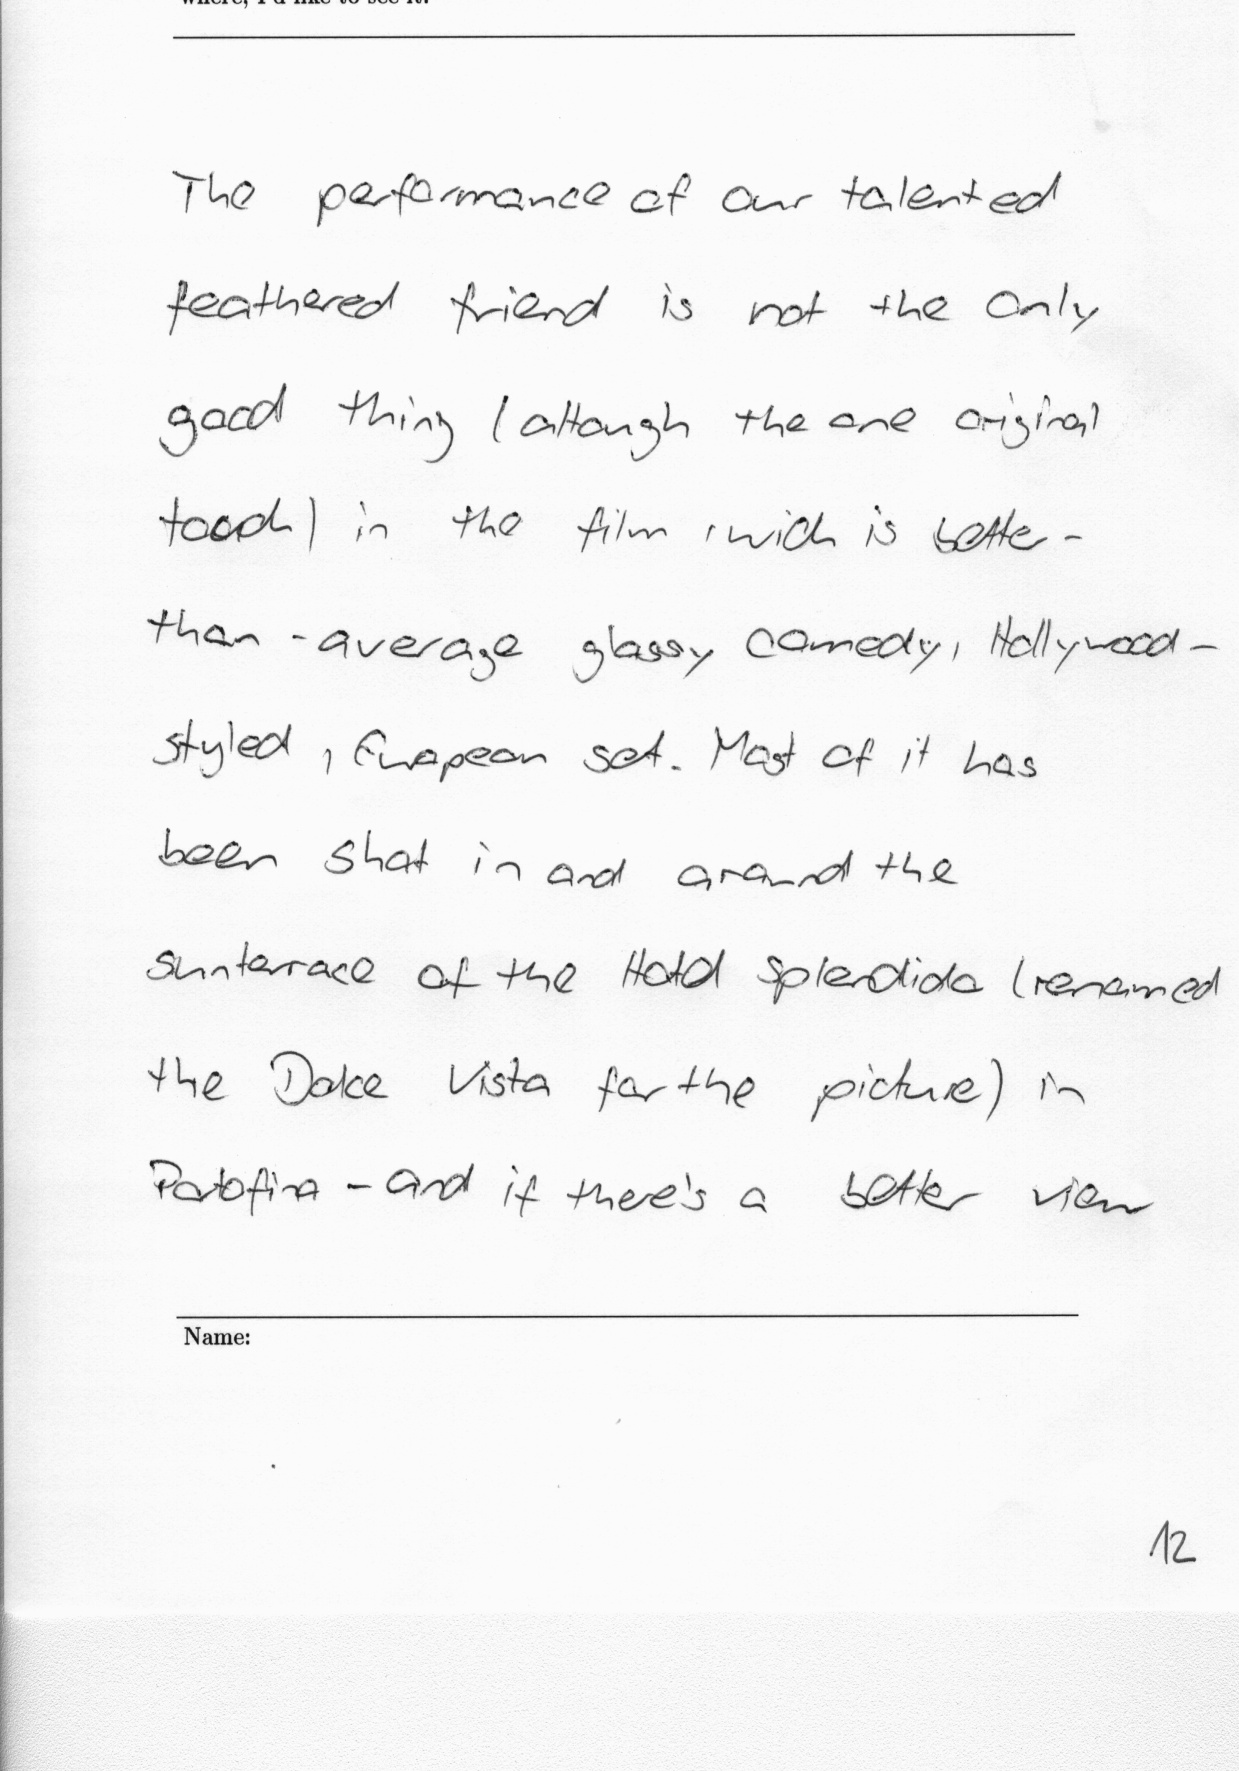 where, I'd like to see it.
The performance of our talented
feathered friend is not the only
good thing (altough the one original
touch) in the film, wich is better-
than-average glossy comedy, Hollywood-
styled, European set. Most of it has
been shot in and around the
sunterrace of the Hotel Splendido (renamed
the Dolce Vista for the picture) in
Portofino - and if there's a better view
Name:
12